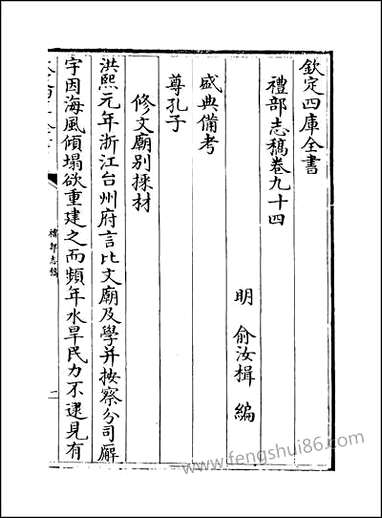 欽定四庫全書
禮部志稿卷九十四
明 俞汝楫 編
盛典備考
尊孔子
修文廟別採材
洪熙元年浙江台州府言比文廟及學并按察分司廨
宇因海風傾塌欲重建之而頻年水旱民力不逮見有
禮部志稿
www.fengshui86.com